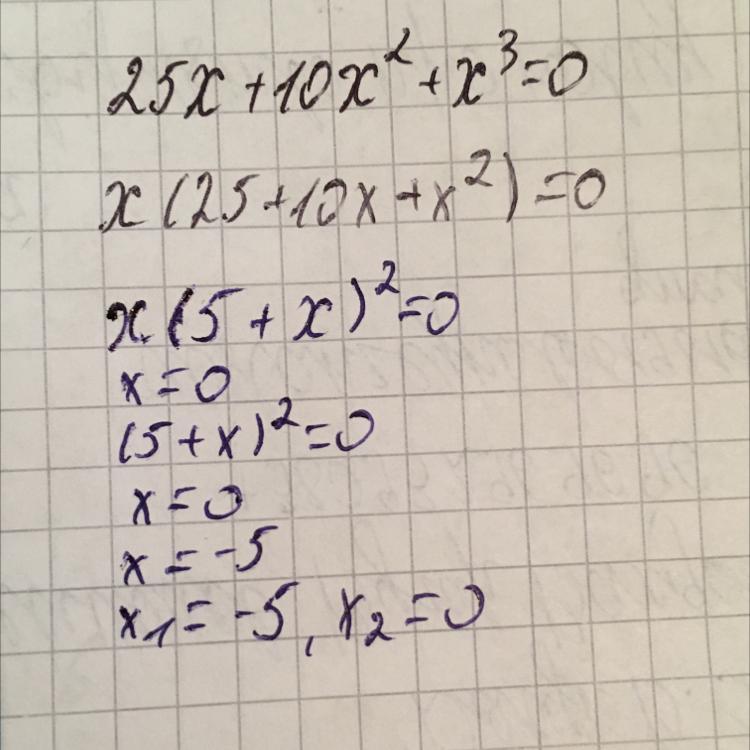 25x+10x²+x³=0
x(25+10x+x²)=0
x(5+x)²=0
x=0
(5+x)²=0
x=0
x=-5
x₁=-5, x₂=0